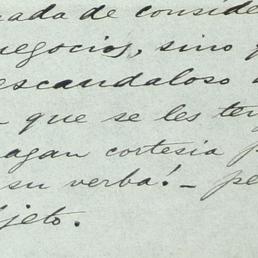 nada de conside
negocios, sino
escandaloso
que se les ten
agan cortesia p
su verba! - pe
jeto.